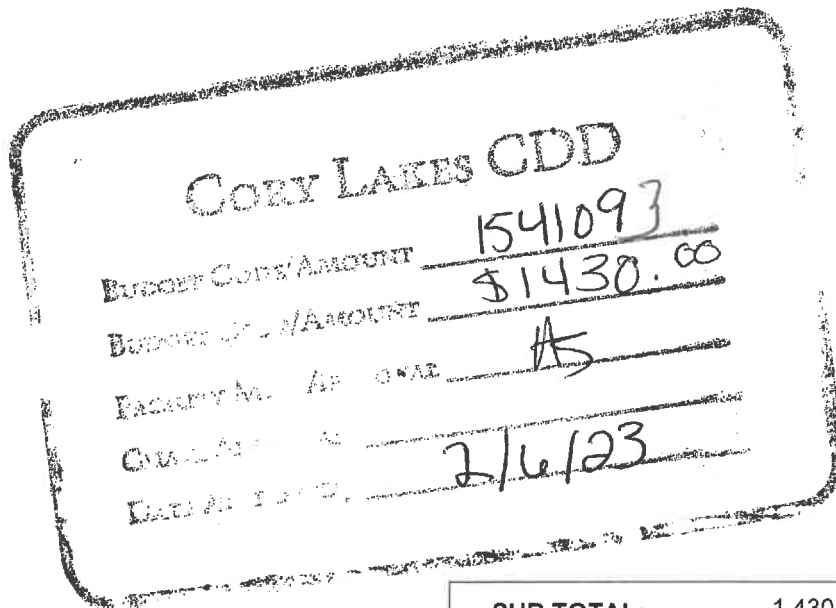 CORY LAKES CDD
BUDGET CODE/AMOUNT 1541093
BUDGET /AMOUNT $1430.00
FACILITY AS
2/6/23
SUB TOTAL: 1,430